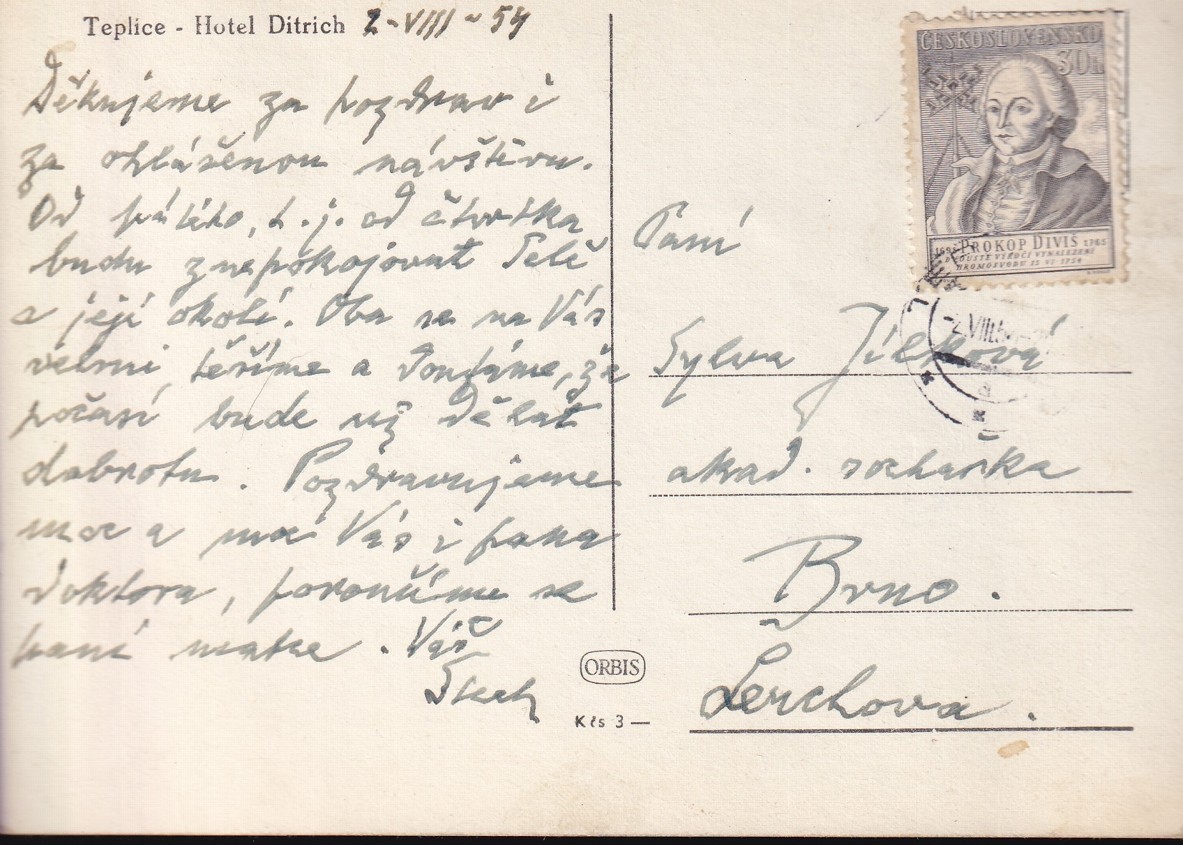 Teplice - Hotel Ditrich 2-VIII-54
Děkujeme za pozdrav i
za ohlášenou návštěvu.
Od pátého, t.j. od čtvrtka
budu znepokojovat Telč
a její okolí. Oba se na Vás
velmi těšíme a doufáme, že
počasí bude už dělat
dobrotu. Pozdravujeme
moc a moc Vás i pana
doktora, poroučíme se
paní matce. Váš
ČESKOSLOVENSKO
30h
PROKOP DIVIŠ 1765
-2.VIII.5
Paní
Sylva Jílková
akad. sochařka
Brno.
Lerchova.
ORBIS
Kčs 3—